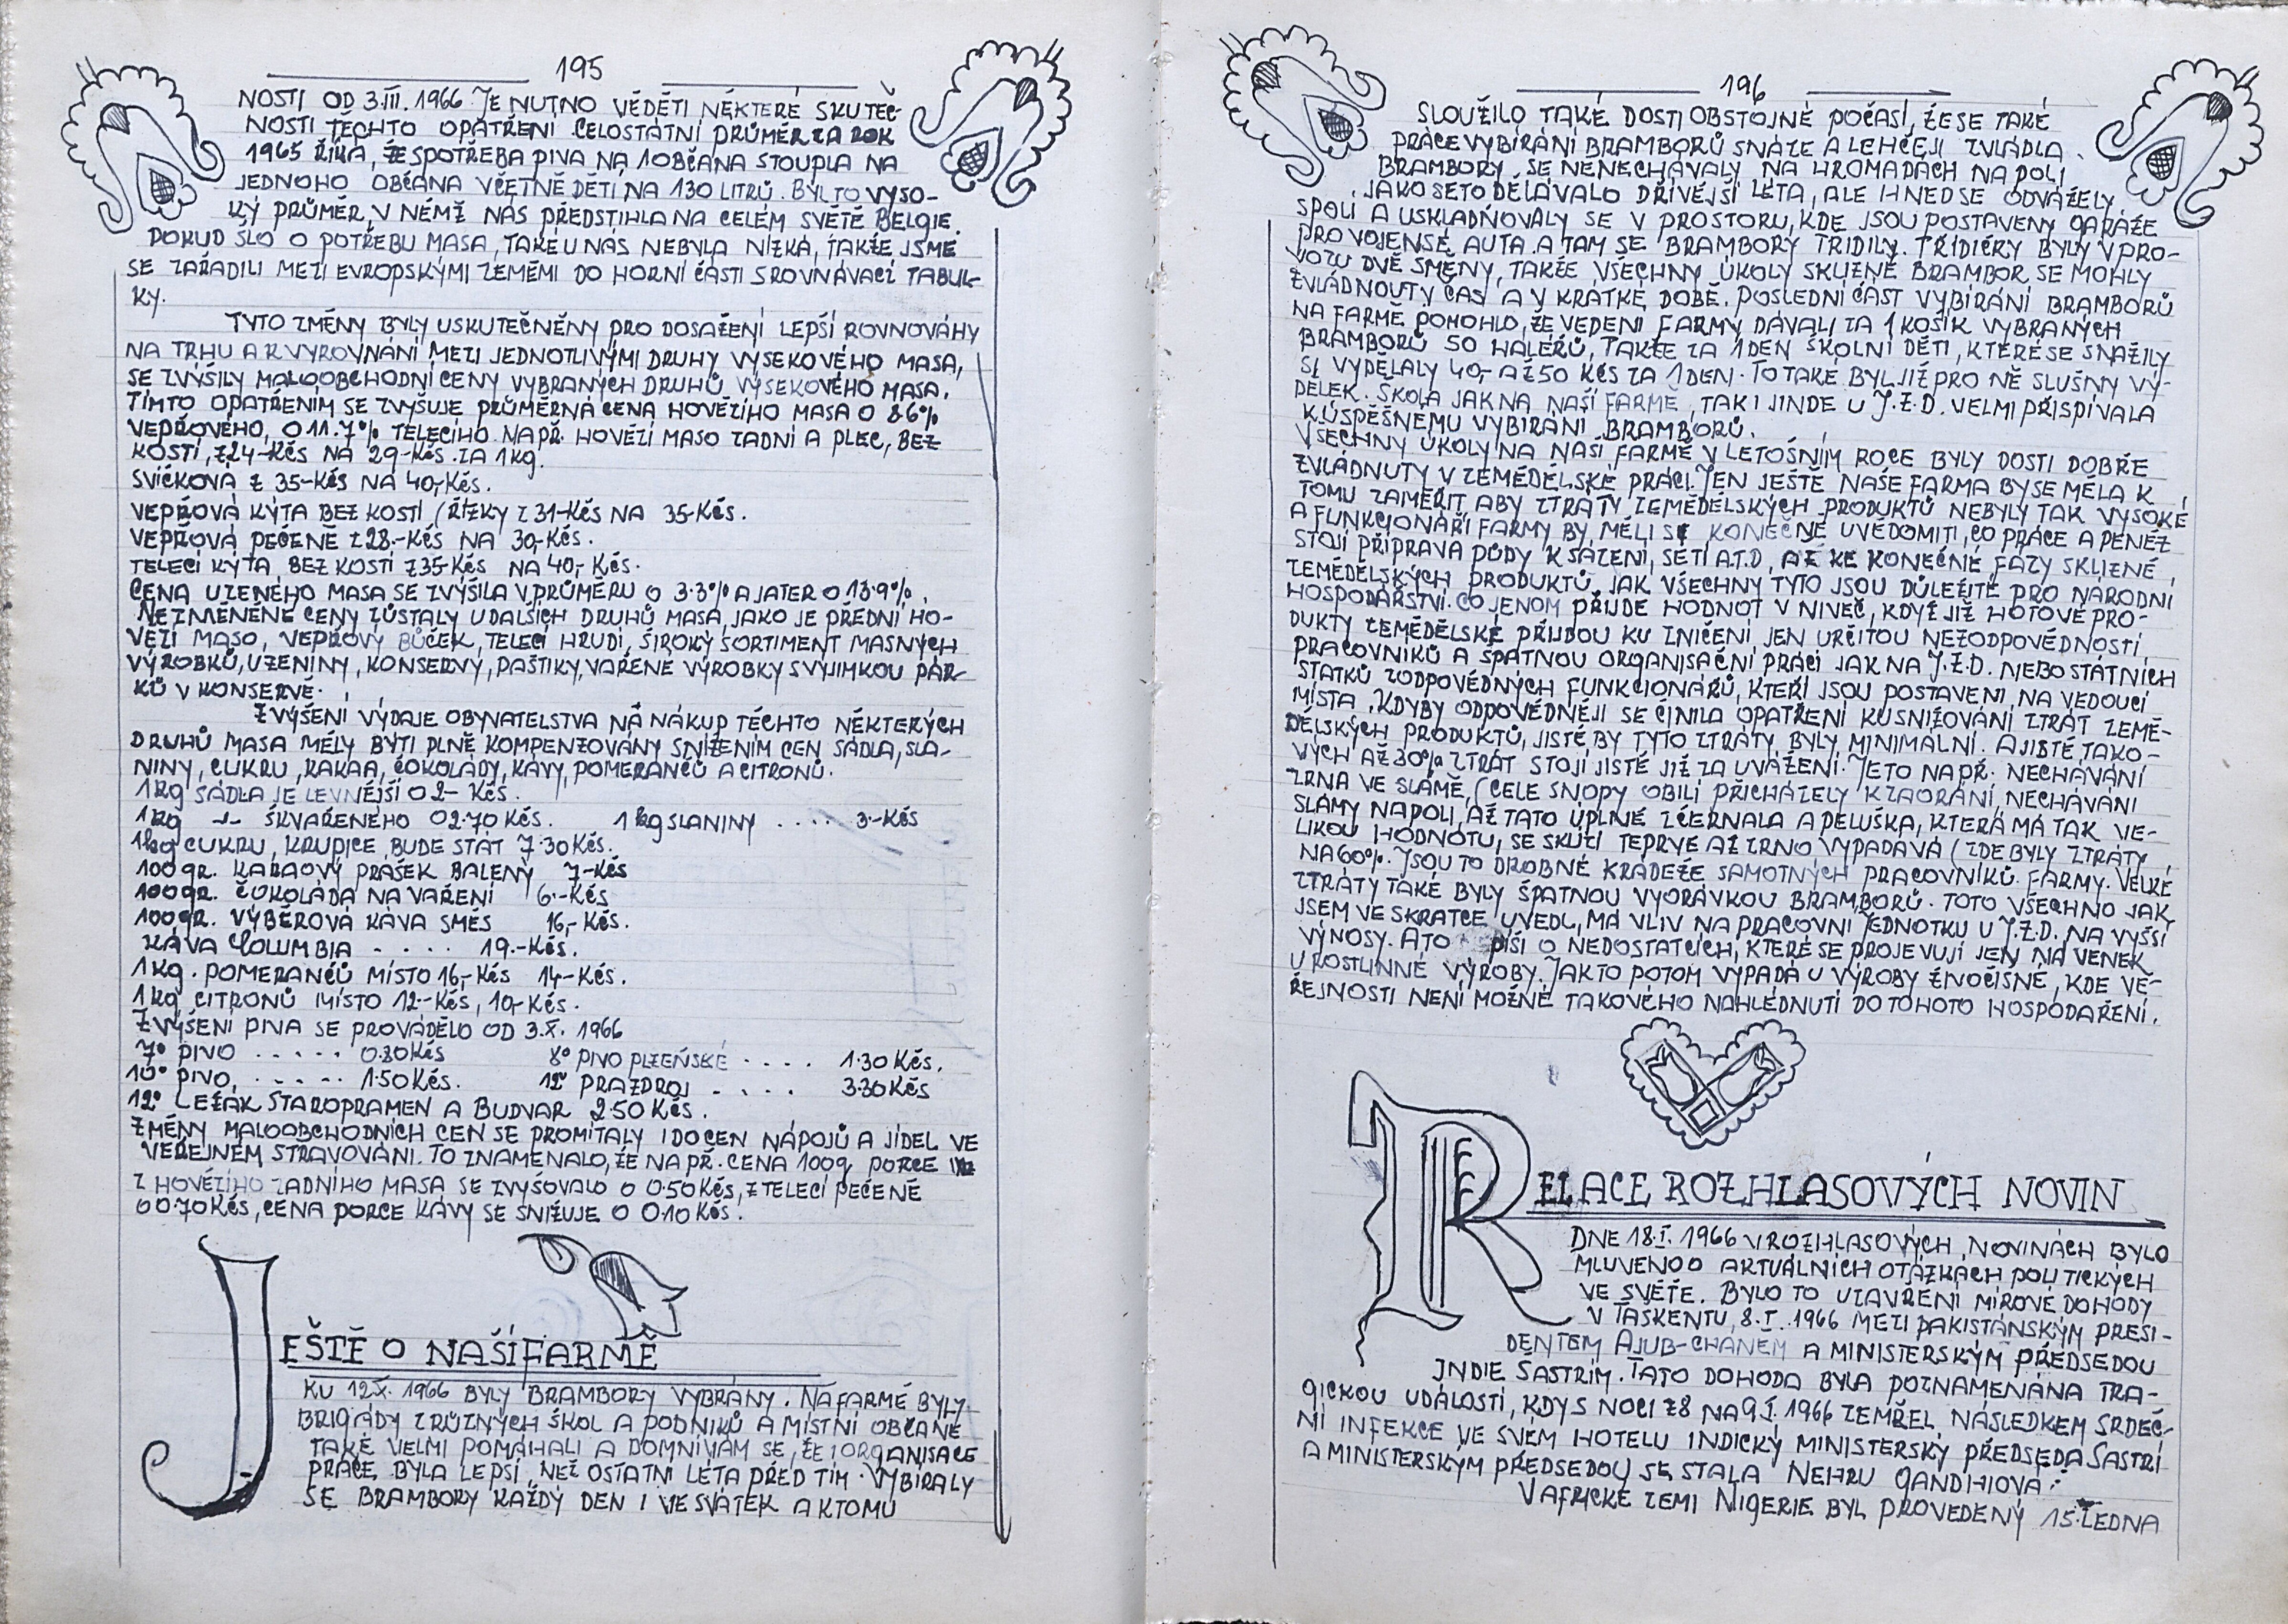 195
NOSTI OD 3.III. 1966. JE NUTNO VĚDĚTI NĚKTERÉ SKUTEČ-
NOSTI TĚCHTO OPATŘENÍ. CELOSTÁTNÍ PRŮMĚR ZA ROK
1965 ŘÍKÁ, ŽE SPOTŘEBA PIVA NA 1 OBČANA STOUPLA NA
JEDNOHO OBČANA VČETNĚ DĚTÍ, NA 130 LITRŮ. BYL TO VYSO-
KÝ PRŮMĚR, V NĚMŽ NÁS PŘEDSTIHLA NA CELÉM SVĚTĚ BELGIE.
POKUD ŠLO O POTŘEBU MASA, TAKÉ U NÁS NEBYLA NÍZKÁ, TAKŽE JSME
SE ZAŘADILI MEZI EVROPSKÝMI ZEMĚMI DO HORNÍ ČÁSTI SROVNÁVACÍ TABUL-
KY.
TYTO ZMĚNY BYLY USKUTEČNĚNY PRO DOSAŽENÍ LEPŠÍ ROVNOVÁHY
NA TRHU A K VYROVNÁNÍ MEZI JEDNOTLIVÝMI DRUHY VÝSEKOVÉHO MASA,
SE ZVÝŠILY MALOOBCHODNÍ CENY VYBRANÝCH DRUHŮ VÝSEKOVÉHO MASA.
TÍMTO OPATŘENÍM SE ZVYŠUJE PRŮMĚRNÁ CENA HOVĚZÍHO MASA O 8.6%
VEPŘOVÉHO, O 11.7% TELECÍHO. NAPŘ. HOVĚZÍ MASO ZADNÍ A PLEC, BEZ
KOSTÍ, Z 24-KČS NA 29-KČS ZA 1 KG.
SVÍČKOVÁ Z 35-KČS NA 40,-KČS.
VEPŘOVÁ KÝTA BEZ KOSTÍ (ŘÍZKY Z 31-KČS NA 35-KČS.
VEPŘOVÁ PEČENĚ Z 28.-KČS NA 30,-KČS.
TELECÍ KÝTA BEZ KOSTÍ Z 35-KČS NA 40,-KČS.
CENA UZENÉHO MASA SE ZVÝŠILA V PRŮMĚRU O 3.3% A JATER O 13.9%.
NEZMĚNĚNÉ CENY ZŮSTALY U DALŠÍCH DRUHŮ MASA, JAKO JE PŘEDNÍ HO-
VĚZÍ MASO, VEPŘOVÝ BŮČEK, TELECÍ HRUDÍ, ŠIROKÝ SORTIMENT MASNÝCH
VÝROBKŮ, UZENINY, KONSERVY, PAŠTIKY, VAŘENÉ VÝROBKY S VÝJIMKOU PÁR-
KŮ V KONSERVĚ.
ZVÝŠENÍ VÝDAJE OBYVATELSTVA NA NÁKUP TĚCHTO NĚKTERÝCH
DRUHŮ MASA MĚLY BÝTI PLNĚ KOMPENZOVÁNY SNÍŽENÍM CEN SÁDLA, SLA-
NINY, CUKRU, KAKAA, ČOKOLÁDY, KÁVY, POMERANČŮ A CITRONŮ.
1 KG SÁDLA JE LEVNĚJŠÍ O 2- KČS.
1 KG -"- ŠKVAŘENÉHO O 2.70 KČS. 1 KG SLANINY .... 3.-KČS
1 KG CUKRU, KRUPICE BUDE STÁT 7.30 KČS.
100 GR. KAKAOVÝ PRÁŠEK BALENÝ 7-KČS
100 GR. ČOKOLÁDA NA VAŘENÍ 6.-KČS
100 GR. VÝBĚROVÁ KÁVA SMĚS 16,-KČS.
KÁVA COLUMBIA ..... 19.-KČS.
1 KG. POMERANČŮ MÍSTO 16,-KČS 14-KČS.
1 KG CITRONŮ MÍSTO 12-KČS, 10,-KČS.
ZVÝŠENÍ PIVA SE PROVÁDĚLO OD 3.X. 1966
7° PIVO ..... 0.80 KČS 8° PIVO PLZEŇSKÉ .... 1.30 KČS.
10° PIVO, ..... 1.50 KČS. 12° PRAZDROJ .... 3.30 KČS
12° LEŽÁK STAROPRAMEN A BUDVAR 2.50 KČS.
ZMĚNY MALOOBCHODNÍCH CEN SE PROMÍTALY I DO CEN NÁPOJŮ A JÍDEL VE
VEŘEJNÉM STRAVOVÁNÍ. TO ZNAMENALO, ŽE NAPŘ. CENA 100 g PORCE
Z HOVĚZÍHO ZADNÍHO MASA SE ZVYŠOVALO O 0.50 KČS, Z TELECÍ PEČENĚ
O 0.70 KČS, CENA PORCE KÁVY SE SNIŽUJE O 0.10 KČS.
JEŠTĚ O NAŠÍ FARMĚ
KU 12.X. 1966 BYLY BRAMBORY VYBRÁNY. NA FARMĚ BYLY
BRIGÁDY Z RŮZNÝCH ŠKOL A PODNIKŮ A MÍSTNÍ OBČANÉ
TAKÉ VELMI POMÁHALI A DOMNÍVÁM SE, ŽE I ORGANISACE
PRÁCE BYLA LEPŠÍ, NEŽ OSTATNÍ LÉTA PŘED TÍM. VYBÍRALY
SE BRAMBORY KAŽDÝ DEN I VE SVÁTEK A K TOMU
196
SLOUŽILO TAKÉ DOSTI OBSTOJNÉ POČASÍ, ŽE SE TAKÉ
PRÁCE VYBÍRÁNÍ BRAMBORŮ SNÁZE A LEHČEJI ZVLÁDLA.
BRAMBORY SE NENECHÁVALY NA HROMADÁCH NA POLI
JAKO SE TO DĚLÁVALO DŘÍVĚJŠÍ LÉTA, ALE IHNED SE ODVÁŽELY
S POLÍ A USKLADŇOVALY SE V PROSTORU, KDE JSOU POSTAVENY GARÁŽE
PRO VOJENSÉ AUTA A TAM SE BRAMBORY TŘÍDILY. TŘÍDIČKY BYLY V PRO-
VOZU DVĚ SMĚNY, TAKŽE VŠECHNY ÚKOLY SKLIZNĚ BRAMBOR SE MOHLY
ZVLÁDNOUT V ČAS A V KRÁTKÉ DOBĚ. POSLEDNÍ ČÁST VYBÍRÁNÍ BRAMBORŮ
NA FARMĚ POMOHLO, ŽE VEDENÍ FARMY DÁVALI ZA 1 KOŠÍK VYBRANÝCH
BRAMBORŮ 50 HALÉŘŮ, TAKŽE ZA 1 DEN ŠKOLNÍ DĚTI, KTERÉ SE SNAŽILY
SI VYDĚLALY 40,- AŽ 50 KČS ZA 1 DEN. TO TAKÉ BYL JIŽ PRO NĚ SLUŠNÝ VÝ-
DĚLEK. ŠKOLA JAK NA NAŠÍ FARMĚ, TAK I JINDE U J.Z.D. VELMI PŘISPÍVALA
K ÚSPĚŠNÉMU VYBÍRÁNÍ BRAMBORŮ.
VŠECHNY ÚKOLY NA NAŠÍ FARMĚ V LETOŠNÍM ROCE BYLY DOSTI DOBŘE
ZVLÁDNUTY V ZEMĚDĚLSKÉ PRÁCI. JEN JEŠTĚ NAŠE FARMA BY SE MĚLA K
TOMU ZAMĚŘIT, ABY ZTRÁTY ZEMĚDĚLSKÝCH PRODUKTŮ NEBYLY TAK VYSOKÉ
A FUNKCIONÁŘI FARMY BY MĚLI SI KONEČNĚ UVĚDOMITI, CO PRÁCE A PENĚZ
STOJÍ PŘÍPRAVA PŮDY K SÁZENÍ, SETÍ A.T.D, AŽ KE KONEČNÉ FÁZY SKLIZNĚ
ZEMĚDĚLSKÝCH PRODUKTŮ, JAK VŠECHNY TYTO JSOU DŮLEŽITÉ PRO NÁRODNÍ
HOSPODÁŘSTVÍ. CO JENOM PŘIJDE HODNOT V NIVEČ, KDYŽ JIŽ HOTOVÉ PRO-
DUKTY ZEMĚDĚLSKÉ PŘIJDOU KU ZNIČENÍ JEN URČITOU NEZODPOVĚDNOSTÍ
PRACOVNÍKŮ A ŠPATNOU ORGANISAČNÍ PRÁCÍ JAK NA J.Z.D. NEBO STÁTNÍCH
STATKŮ ZODPOVĚDNÝCH FUNKCIONÁŘŮ, KTEŘÍ JSOU POSTAVENI NA VEDOUCÍ
MÍSTA. KDYBY ODPOVĚDNĚJI SE ČINILA OPATŘENÍ KU SNIŽOVÁNÍ ZTRÁT ZEMĚ-
DĚLSKÝCH PRODUKTŮ, JISTĚ BY TYTO ZTRÁTY BYLY MINIMÁLNÍ. A JISTĚ TAKO-
VÝCH AŽ 30% ZTRÁT STOJÍ JISTĚ JIŽ ZA UVÁŽENÍ. JE TO NAPŘ. NECHÁVÁNÍ
ZRNA VE SLÁMĚ, (CELÉ SNOPY OBILÍ PŘICHÁZELY K ZAORÁNÍ, NECHÁVÁNÍ
SLÁMY NA POLI, AŽ TATO ÚPLNĚ ZČERNALA A PELUŠKA, KTERÁ MÁ TAK VE-
LIKOU HODNOTU, SE SKLÍZÍ TEPRVE AŽ ZRNO VYPADÁVÁ (ZDE BYLY ZTRÁTY
NA 60%. JSOU TO DROBNÉ KRÁDEŽE SAMOTNÝCH PRACOVNÍKŮ FARMY. VELKÉ
ZTRÁTY TAKÉ BYLY ŠPATNOU VYORÁVKOU BRAMBORŮ. TOTO VŠECHNO JAK
JSEM VE SKRATCE UVEDL, MÁ VLIV NA PRACOVNÍ JEDNOTKU U J.Z.D. NA VYŠŠÍ
VÝNOSY. A TO PÍŠI O NEDOSTATCÍCH, KTERÉ SE PROJEVUJÍ JEN NA VENEK
U ROSTLINNÉ VÝROBY. JAK TO POTOM VYPADÁ U VÝROBY ŽIVOČIŠNÉ, KDE VE-
ŘEJNOSTI NENÍ MOŽNÉ TAKOVÉHO NAHLÉDNUTÍ DO TOHOTO HOSPODAŘENÍ.
RELACE ROZHLASOVÝCH NOVIN
DNE 18.I. 1966 V ROZHLASOVÝCH NOVINÁCH BYLO
MLUVENO O AKTUÁLNÍCH OTÁZKÁCH POLITICKÝCH
VE SVĚTĚ. BYLO TO UZAVŘENÍ MÍROVÉ DOHODY
V TAŠKENTU, 8.I. 1966 MEZI PAKISTÁNSKÝM PRESI-
DENTEM AJUB-CHÁNEM A MINISTERSKÝM PŘEDSEDOU
INDIE ŠASTRÍM. TATO DOHODA BYLA POZNAMENÁNA TRA-
GICKOU UDÁLOSTÍ, KDY S NOCI Z 8 NA 9.I. 1966 ZEMŘEL NÁSLEDKEM SRDEČ-
NÍ INFEKCE VE SVÉM HOTELU INDICKÝ MINISTERSKÝ PŘEDSEDA ŠASTRÍ
A MINISTERSKÝM PŘEDSEDOU SE STALA NEHRU GANDHIOVÁ.
V AFRICKÉ ZEMI NIGERIE BYL PROVEDENÝ 15. LEDNA